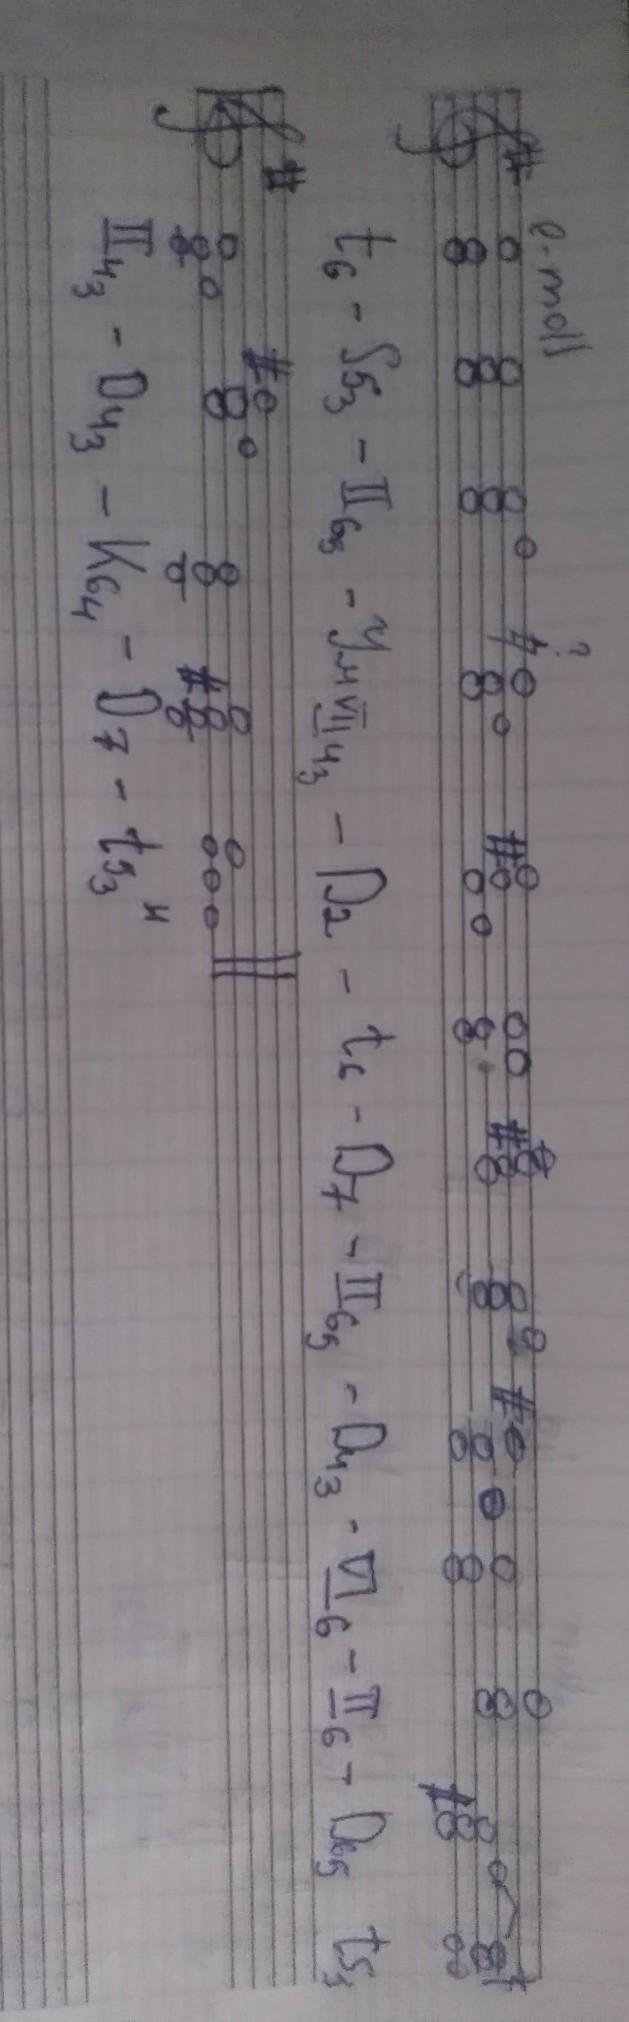 e-moll
?
t6 - S53 - II65 - УмVII43 - D2 - t6 - D7 - II65 - D43 - VI6 - II6 - D65 t53
II43 - D43 - K64 - D7 - t53н